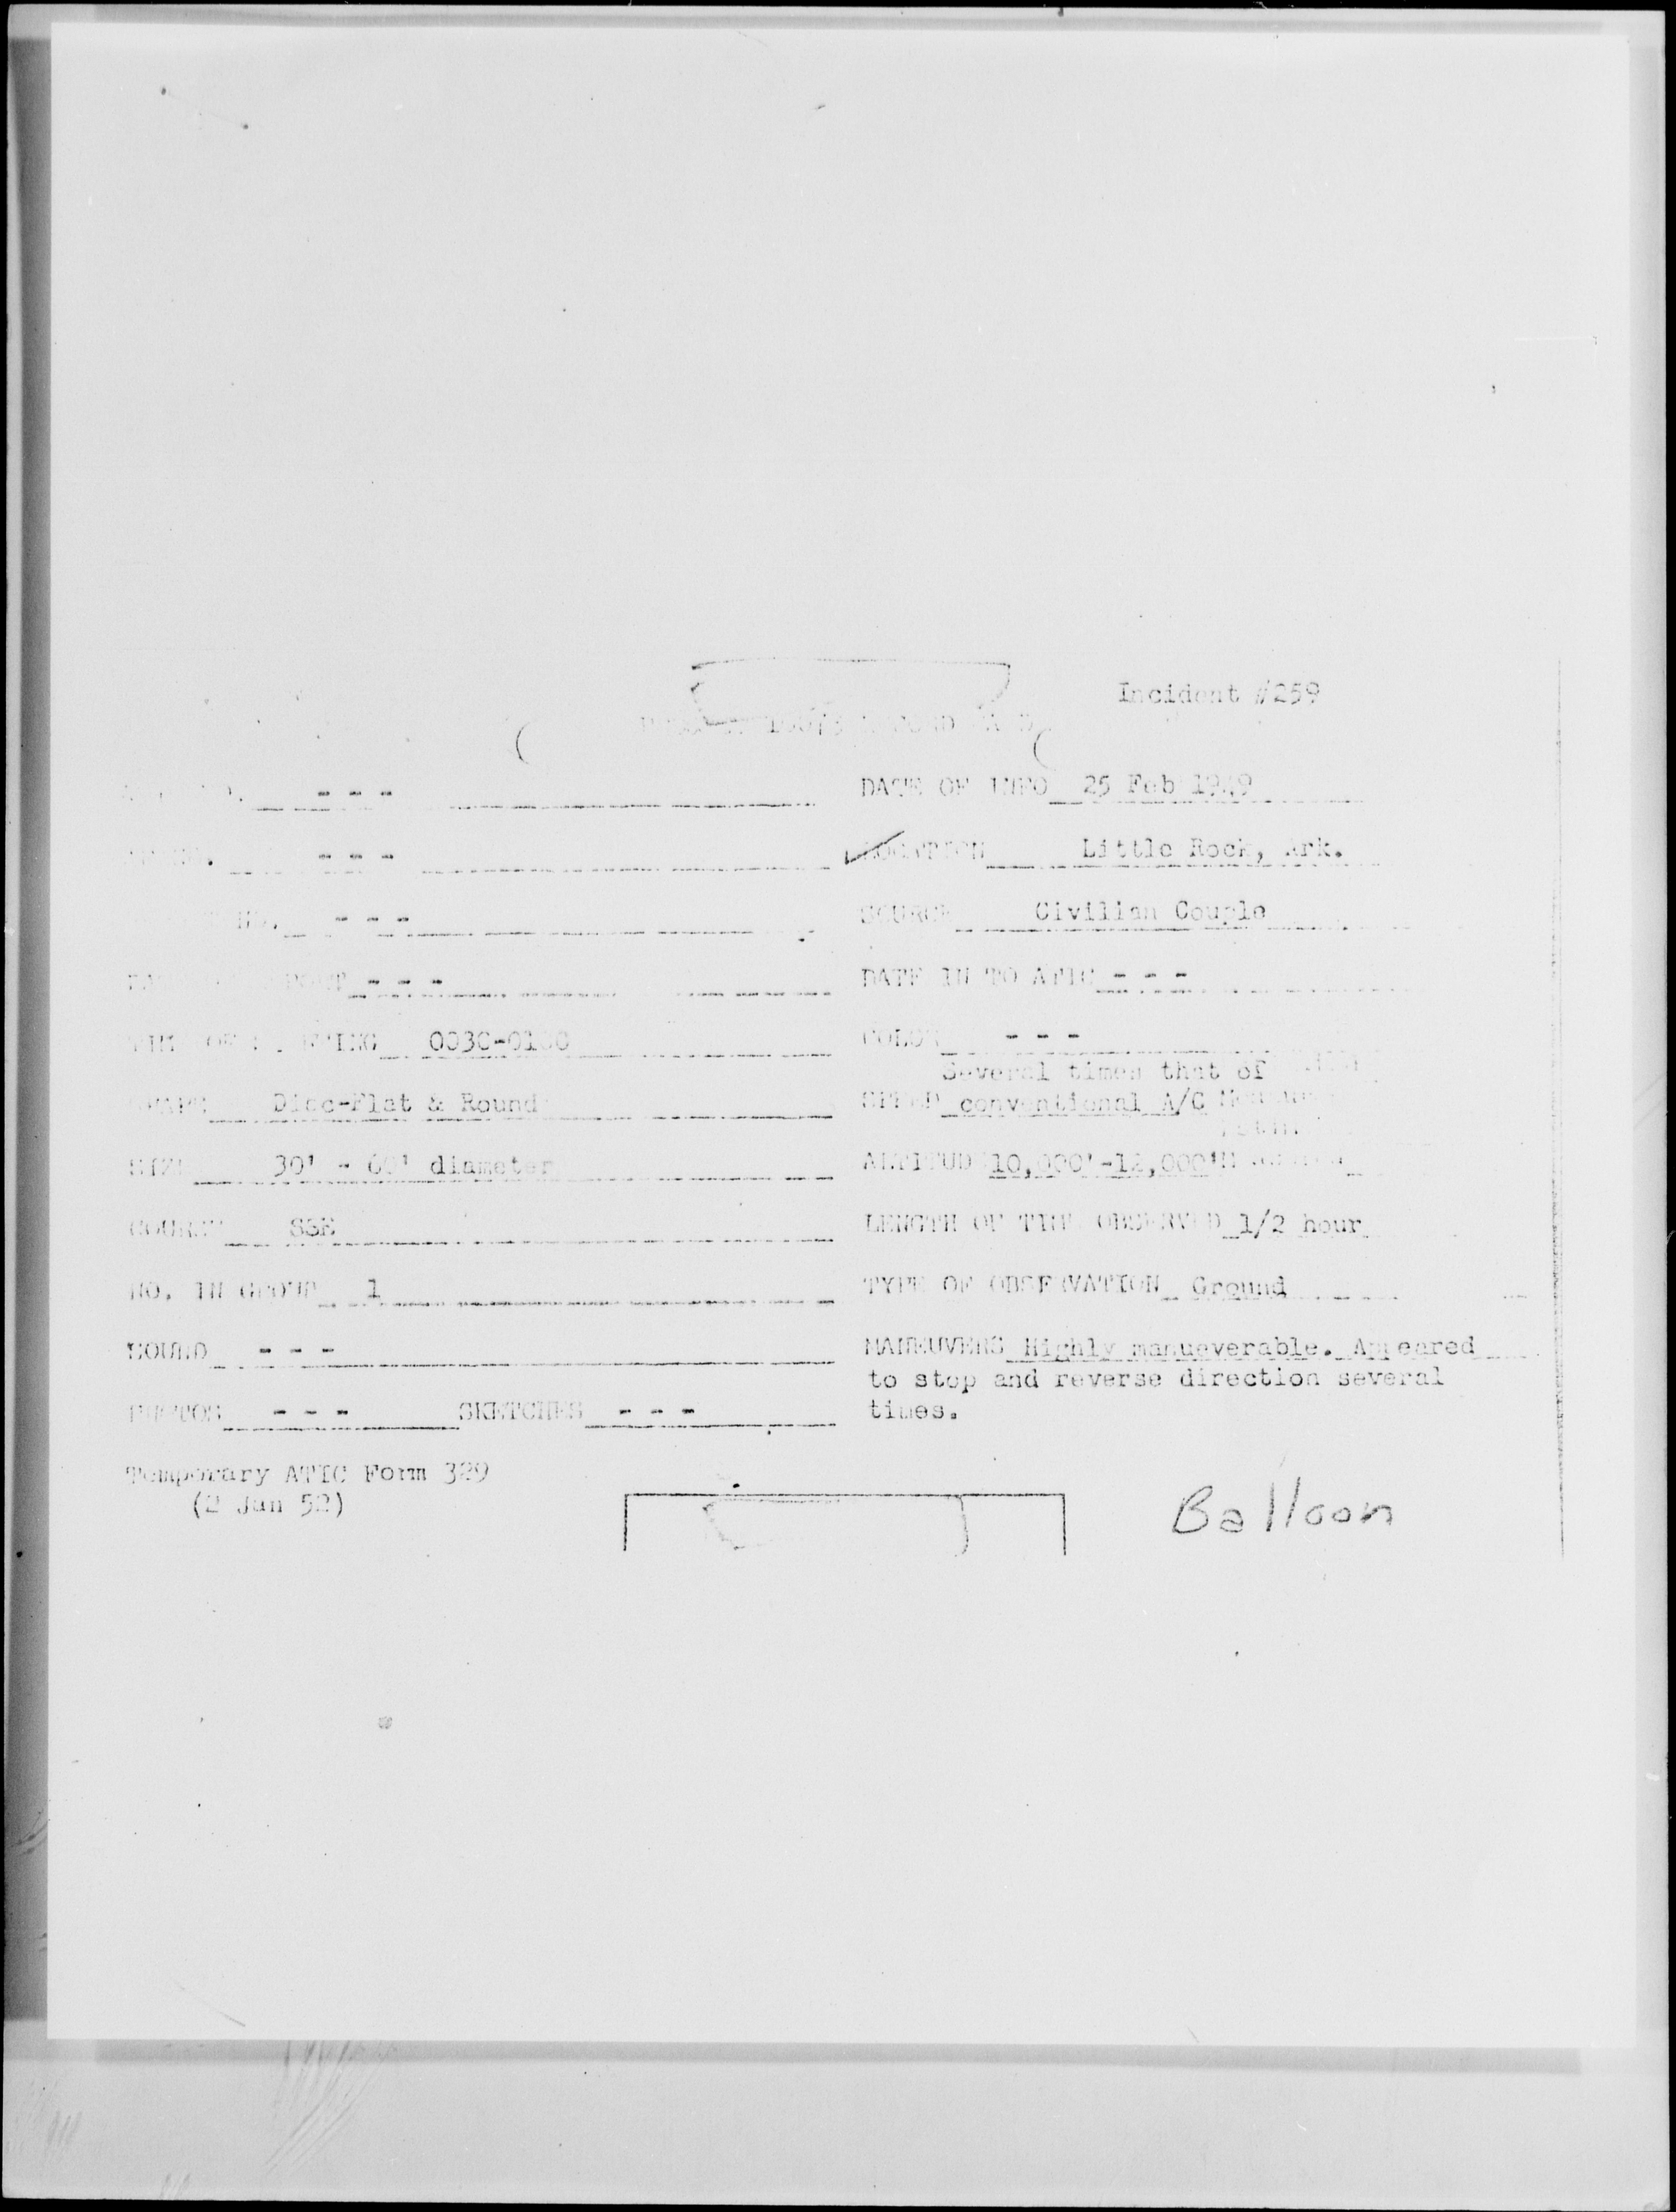 Incident #259
- - - DATE OF INFO 25 Feb 1949
- - - LOCATION Little Rock, Ark.
NO. - - - SOURCE Civilian Couple
- - - DATE IN TO ATIC - - -
TIME OF SIGHTING 0030-0100 COLOR - - -
Several times that of
SHAPE Disc-Flat & Round SPEED conventional A/C
SIZE 30' - 60' diameter ALTITUDE 10,000'-12,000'
COURSE SSE LENGTH OF TIME OBSERVED 1/2 hour
NO. IN GROUP 1 TYPE OF OBSERVATION Ground
SOUND - - - MANEUVERS Highly manueverable. Appeared
to stop and reverse direction several
PHOTOS - - - SKETCHES - - - times.
Temporary ATIC Form 329
(2 Jan 52)
Balloon